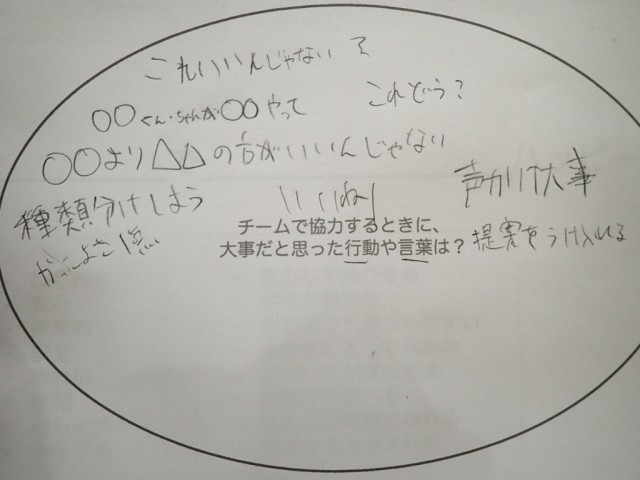 これいいんじゃない？
○○くん・ちゃんが○○やって
これどう？
○○より△△の方がいいんじゃない
種類分けしよう
いいね！
声かけ大事
チームで協力するときに、
大事だと思った行動や言葉は？
提案をうけ入れる
かっこよさ1点